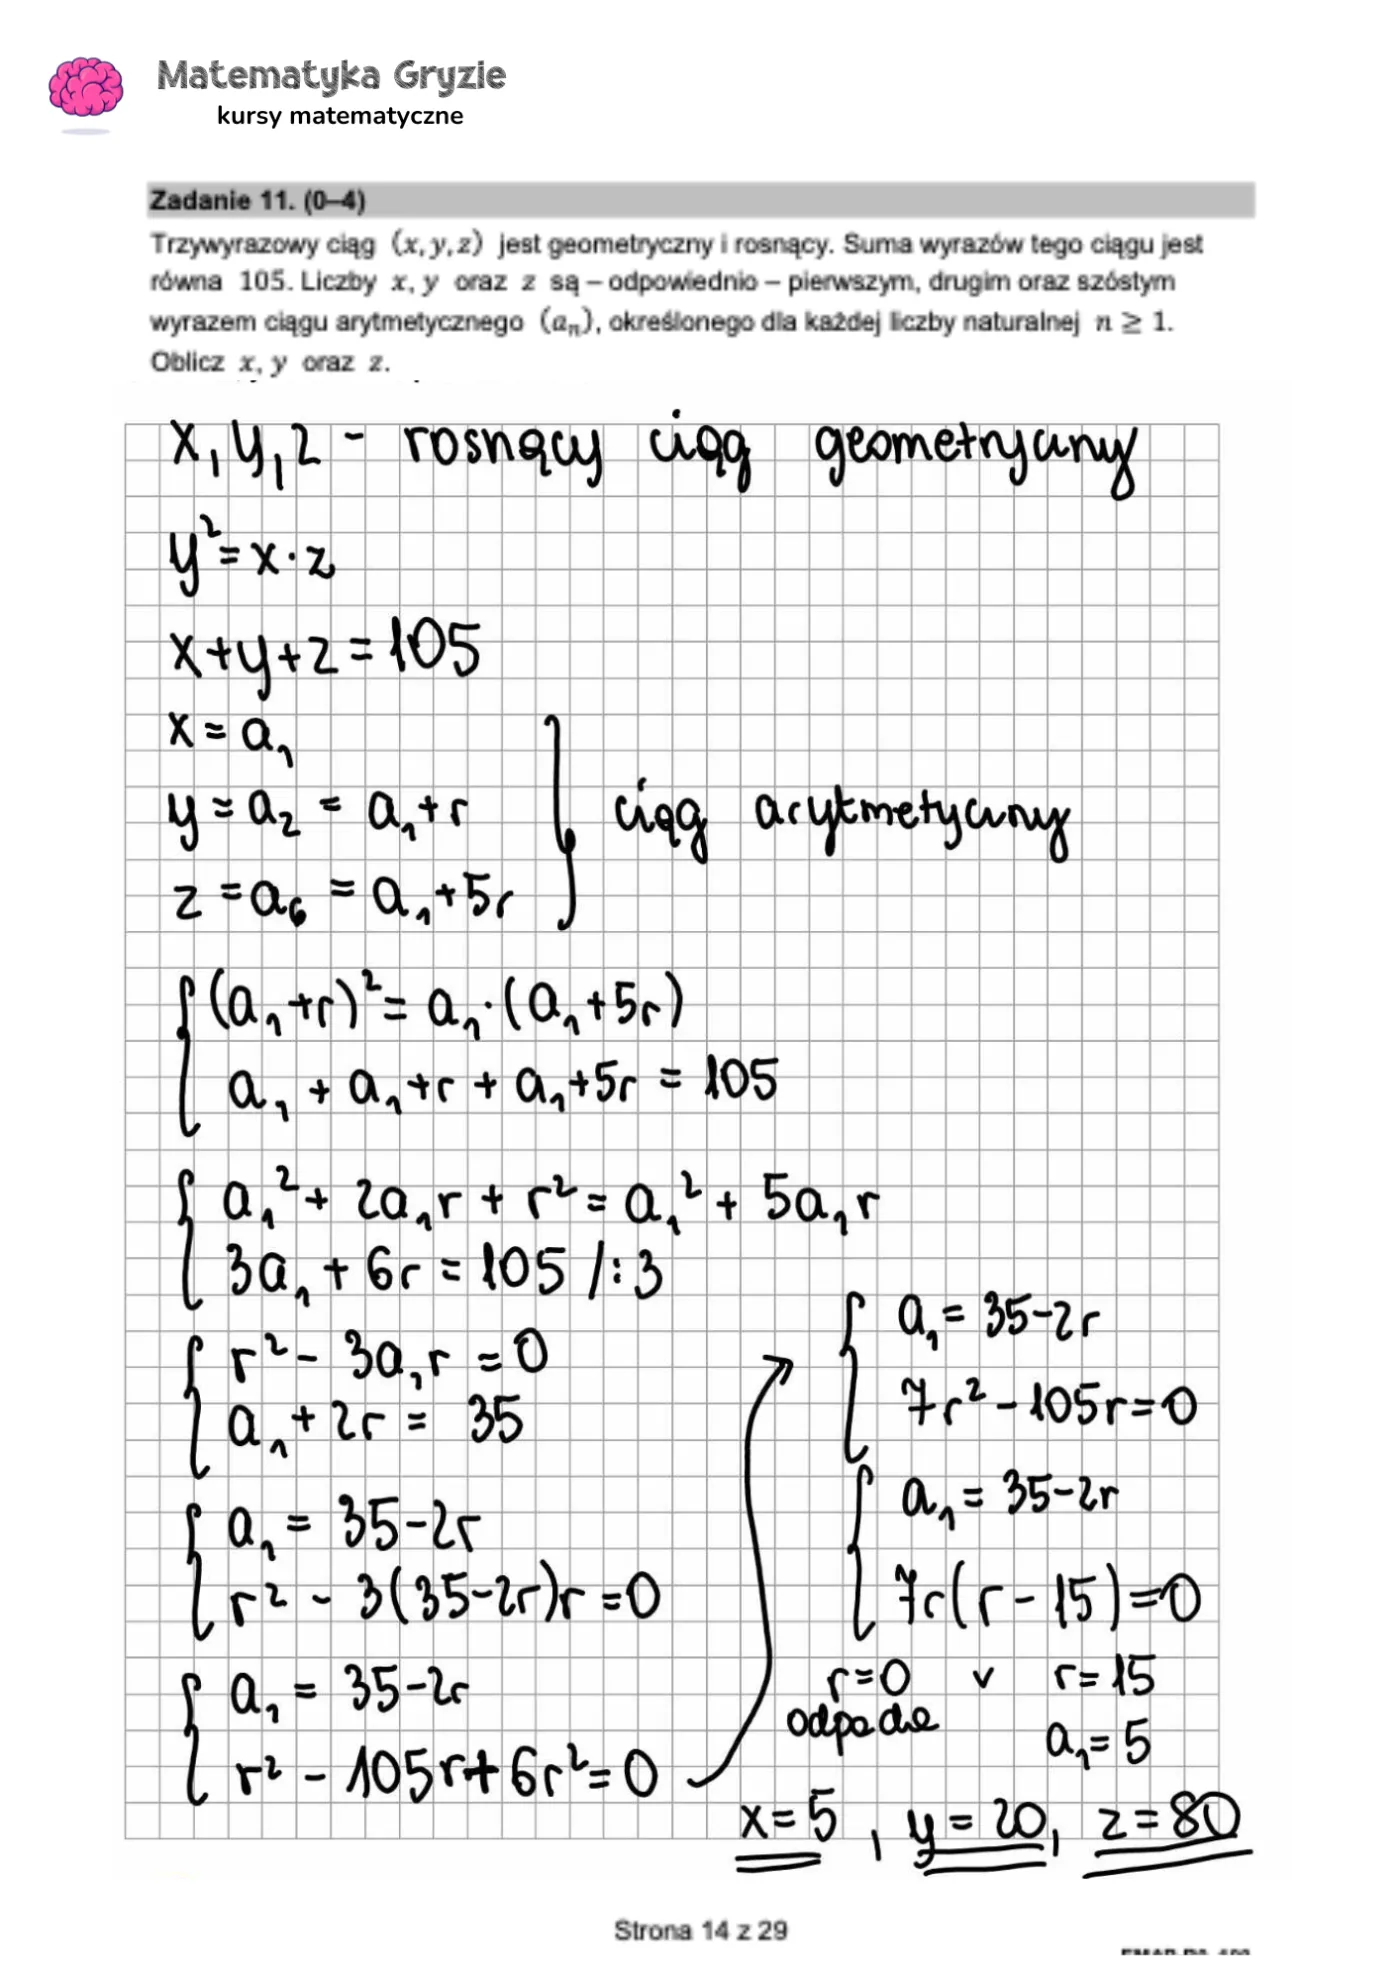 Matematyka Gryzie
kursy matematyczne
Zadanie 11. (0–4)
Trzywyrazowy ciąg (x, y, z) jest geometryczny i rosnący. Suma wyrazów tego ciągu jest
równa 105. Liczby x, y oraz z są – odpowiednio – pierwszym, drugim oraz szóstym
wyrazem ciągu arytmetycznego (aₙ), określonego dla każdej liczby naturalnej n ≥ 1.
Oblicz x, y oraz z.
x, y, z - rosnący ciąg geometryczny
y² = x · z
x + y + z = 105
x = a₁
y = a₂ = a₁ + r
z = a₆ = a₁ + 5r
ciąg arytmetyczny
(a₁ + r)² = a₁ · (a₁ + 5r)
a₁ + a₁ + r + a₁ + 5r = 105
a₁² + 2a₁r + r² = a₁² + 5a₁r
3a₁ + 6r = 105 /:3
r² - 3a₁r = 0
a₁ + 2r = 35
a₁ = 35 - 2r
r² - 3(35 - 2r)r = 0
a₁ = 35 - 2r
r² - 105r + 6r² = 0
a₁ = 35 - 2r
7r² - 105r = 0
a₁ = 35 - 2r
7r(r - 15) = 0
r = 0 v r = 15
odpada
a₁ = 5
x = 5, y = 20, z = 80
Strona 14 z 29